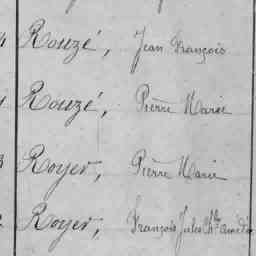 Rouzé, Jean François
Rouzé, Pierre Marie
Royer, Pierre Marie
Royer, François Jules